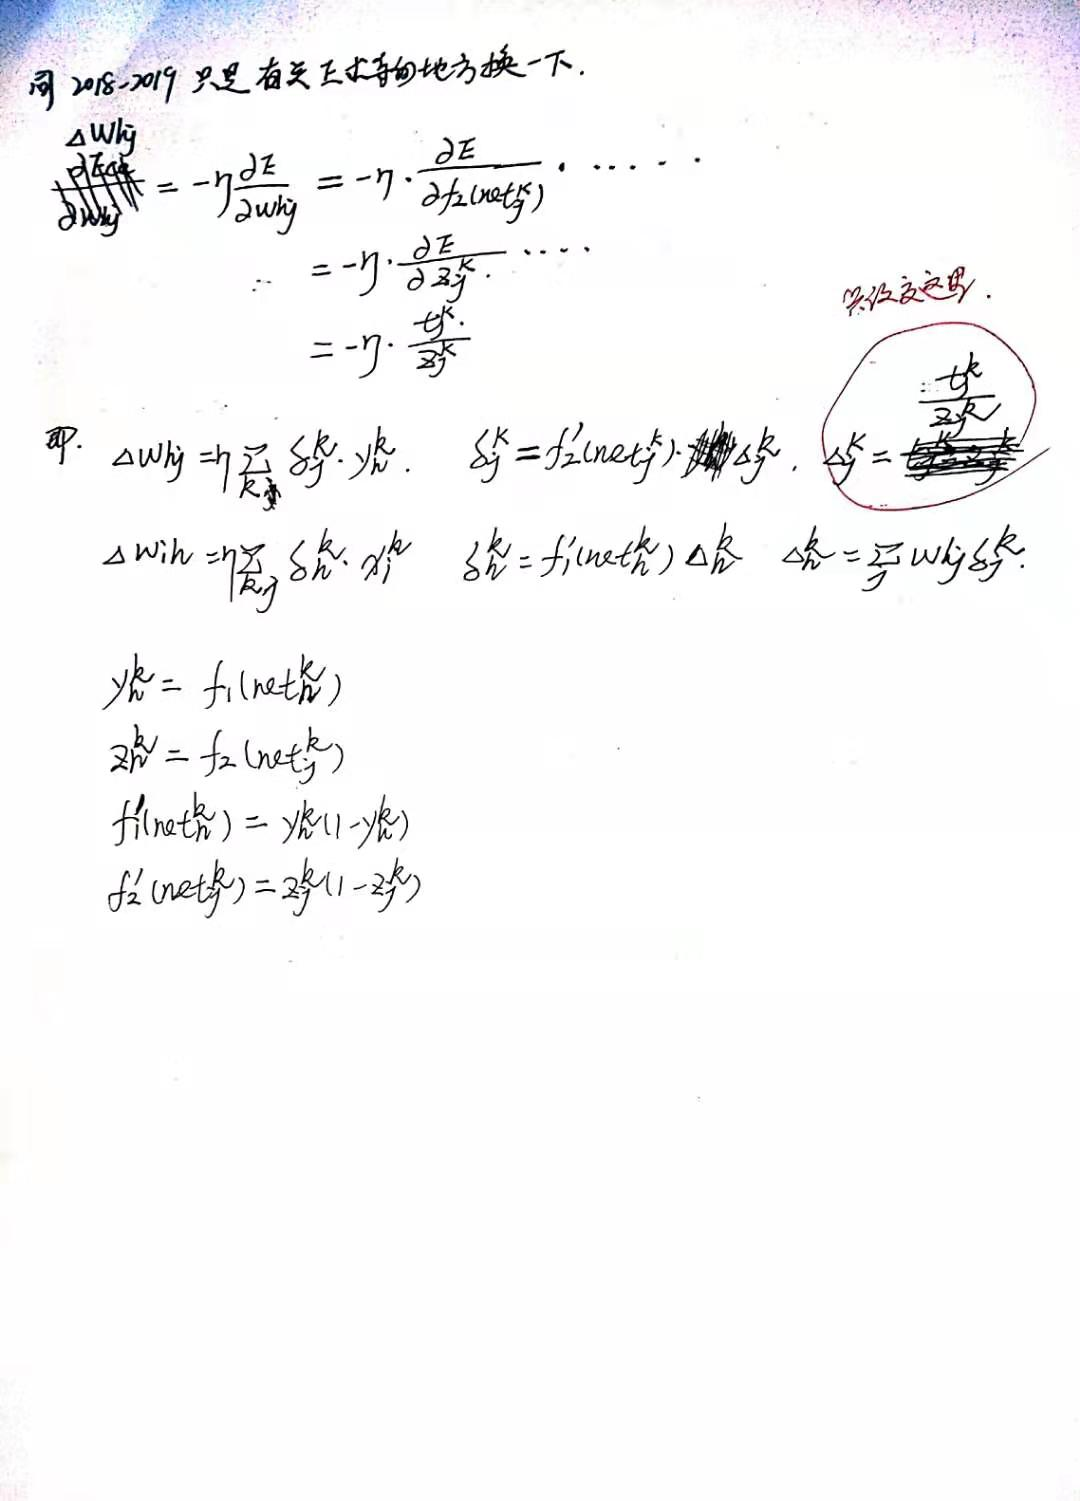 同 2018-2019 只是有关E求导的地方换一下.
ΔWhj = -η ∂E/∂Whj = -η · ∂E/∂f₂(netⱼᵏ) · · · · · ·
= -η · ∂E/∂zⱼᵏ · · · · ·
= -η · tⱼᵏ/zⱼᵏ
只改变这里.
即. ΔWhj = η Σₖ δⱼᵏ · yₕᵏ. δⱼᵏ = f₂′(netⱼᵏ) · Δⱼᵏ. Δⱼᵏ = tⱼᵏ/zⱼᵏ
ΔWih = η Σₖ,ⱼ δₕᵏ · xᵢᵏ δₕᵏ = f₁′(netₕᵏ) Δₕᵏ Δₕᵏ = Σⱼ Whj δⱼᵏ.
yₕᵏ = f₁(netₕᵏ)
zₕᵏ = f₂(netⱼᵏ)
f₁′(netₕᵏ) = yₕᵏ(1-yₕᵏ)
f₂′(netⱼᵏ) = zⱼᵏ(1-zⱼᵏ)